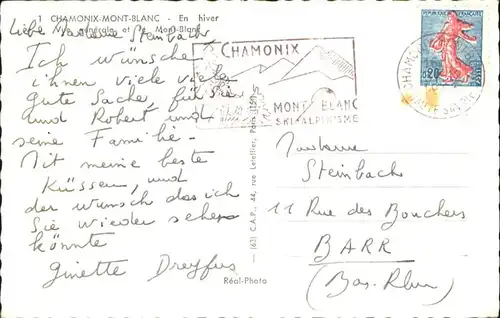 CHAMONIX-MONT-BLANC - En hiver
et le Mont-Blanc
Liebe Madame Steinbach
Ich wünsche
ihnen viele viele
gute Sache, für Sie
und Robert und
seine Familie.
Mit meine beste
Küssen, und
der Wunsch das ich
Sie wieder sehen
könnte
Ginette Dreyfus
CHAMONIX
MONT BLANC
SKI-ALPINISME
(63) C.A.P., 44, rue Letellier, Paris (15e)
Réal-Photo
POSTES
0,20
HAUTE SAVOIE
Madame
Steinbach
11 Rue des Bouchers
BARR
(Bas. Rhin)